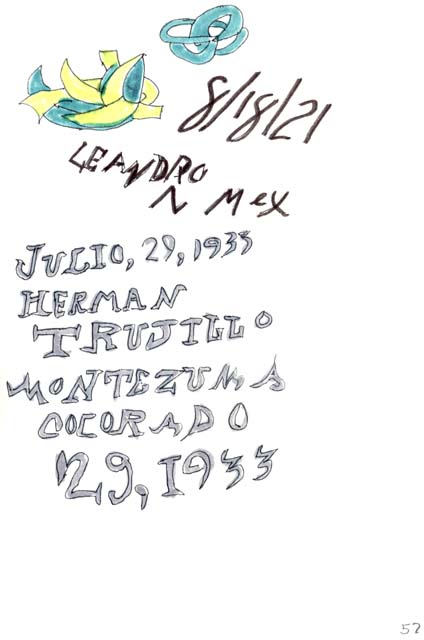 8/18/21
LEANDRO
N MeX
JULIO, 29, 1933
HERMAN
TRUJILLO
MONTEZUMA
COLORADO
29, 1933
52